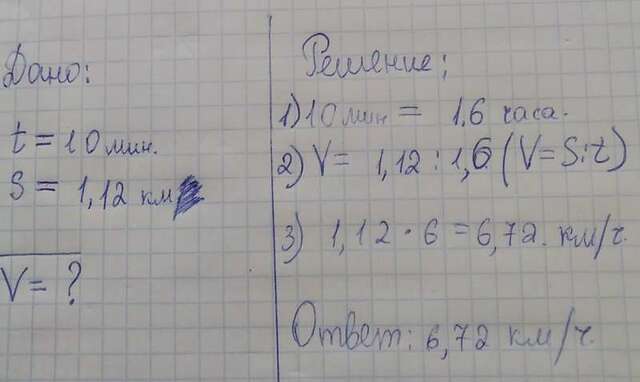 Дано:
t = 10 мин.
S = 1,12 км
V = ?
Решение;
1) 10 мин = 1,6 часа.
2) V = 1,12 : 1,6 (V = S:t)
3) 1,12 · 6 = 6,72. км/ч.
Ответ: 6,72 км/ч.